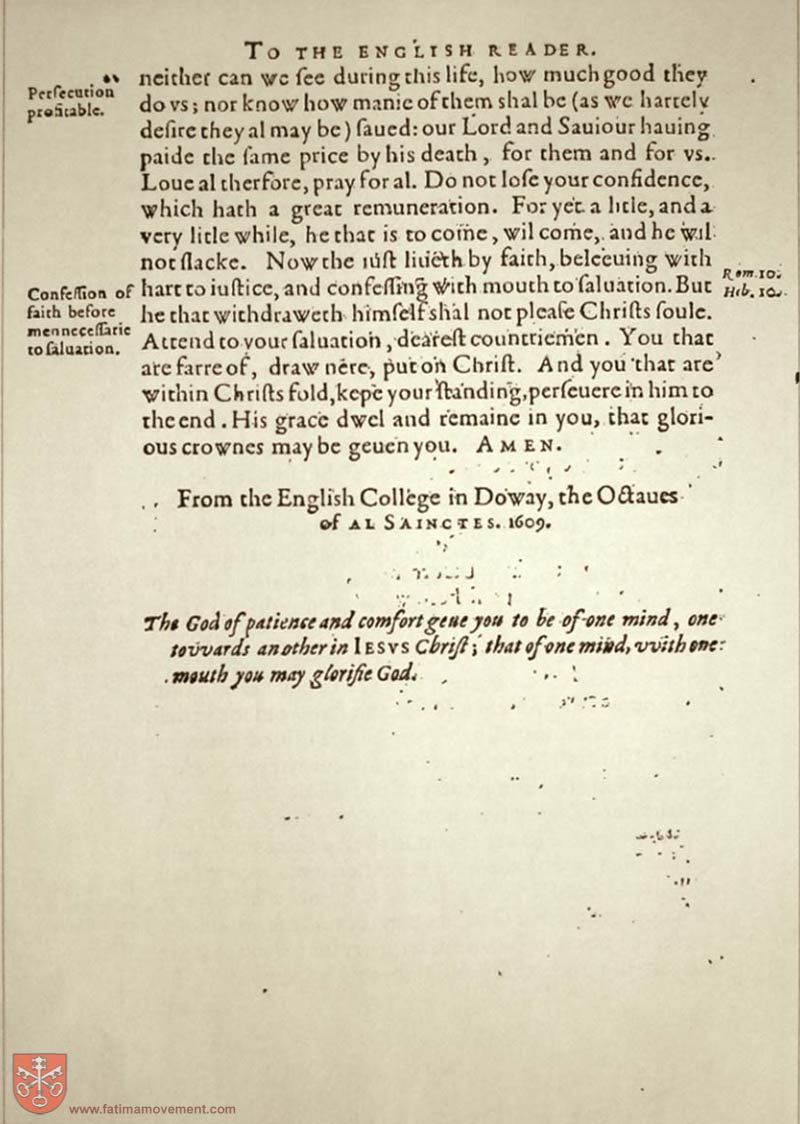 To THE ENGLISH READER.
neither can we ſee during this life, how much good they
do vs; nor know how manie of them shal be (as we hartely
deſire they al may be) ſaued: our Lord and Sauiour hauing
paide the ſame price by his death, for them and for vs.
Loue al therfore, pray for al. Do not loſe your confidence,
which hath a great remuneration. For yet a litle, and a
very litle while, he that is to come, wil come, and he wil
not ſlacke. Now the iuſt liueth by faith, beleeuing with
hart to iuſtice, and confeſſing with mouth to ſaluation. But
he that withdraweth himſelf shal not pleaſe Chriſts ſoule.
Attend to your ſaluation, deareſt countriemen. You that
are farre of, draw nere, put on Chriſt. And you that are
within Chriſts fold, kepe your ſtanding, perſeuere in him to
the end. His grace dwel and remaine in you, that glori-
ous crownes may be geuen you. AMEN.
Perſecution
profitable.
Confeſſion of
faith before
men neceſſarie
to ſaluation.
Rom. 10.
Heb. 10.
From the English College in Doway, the Octaues
of AL SAINCTES. 1609.
The God of patience and comfort geue you to be of one mind, one
tovvards another in IESVS Chriſt; that of one mind, vvith one
mouth you may glorifie God.
www.fatimamovement.com